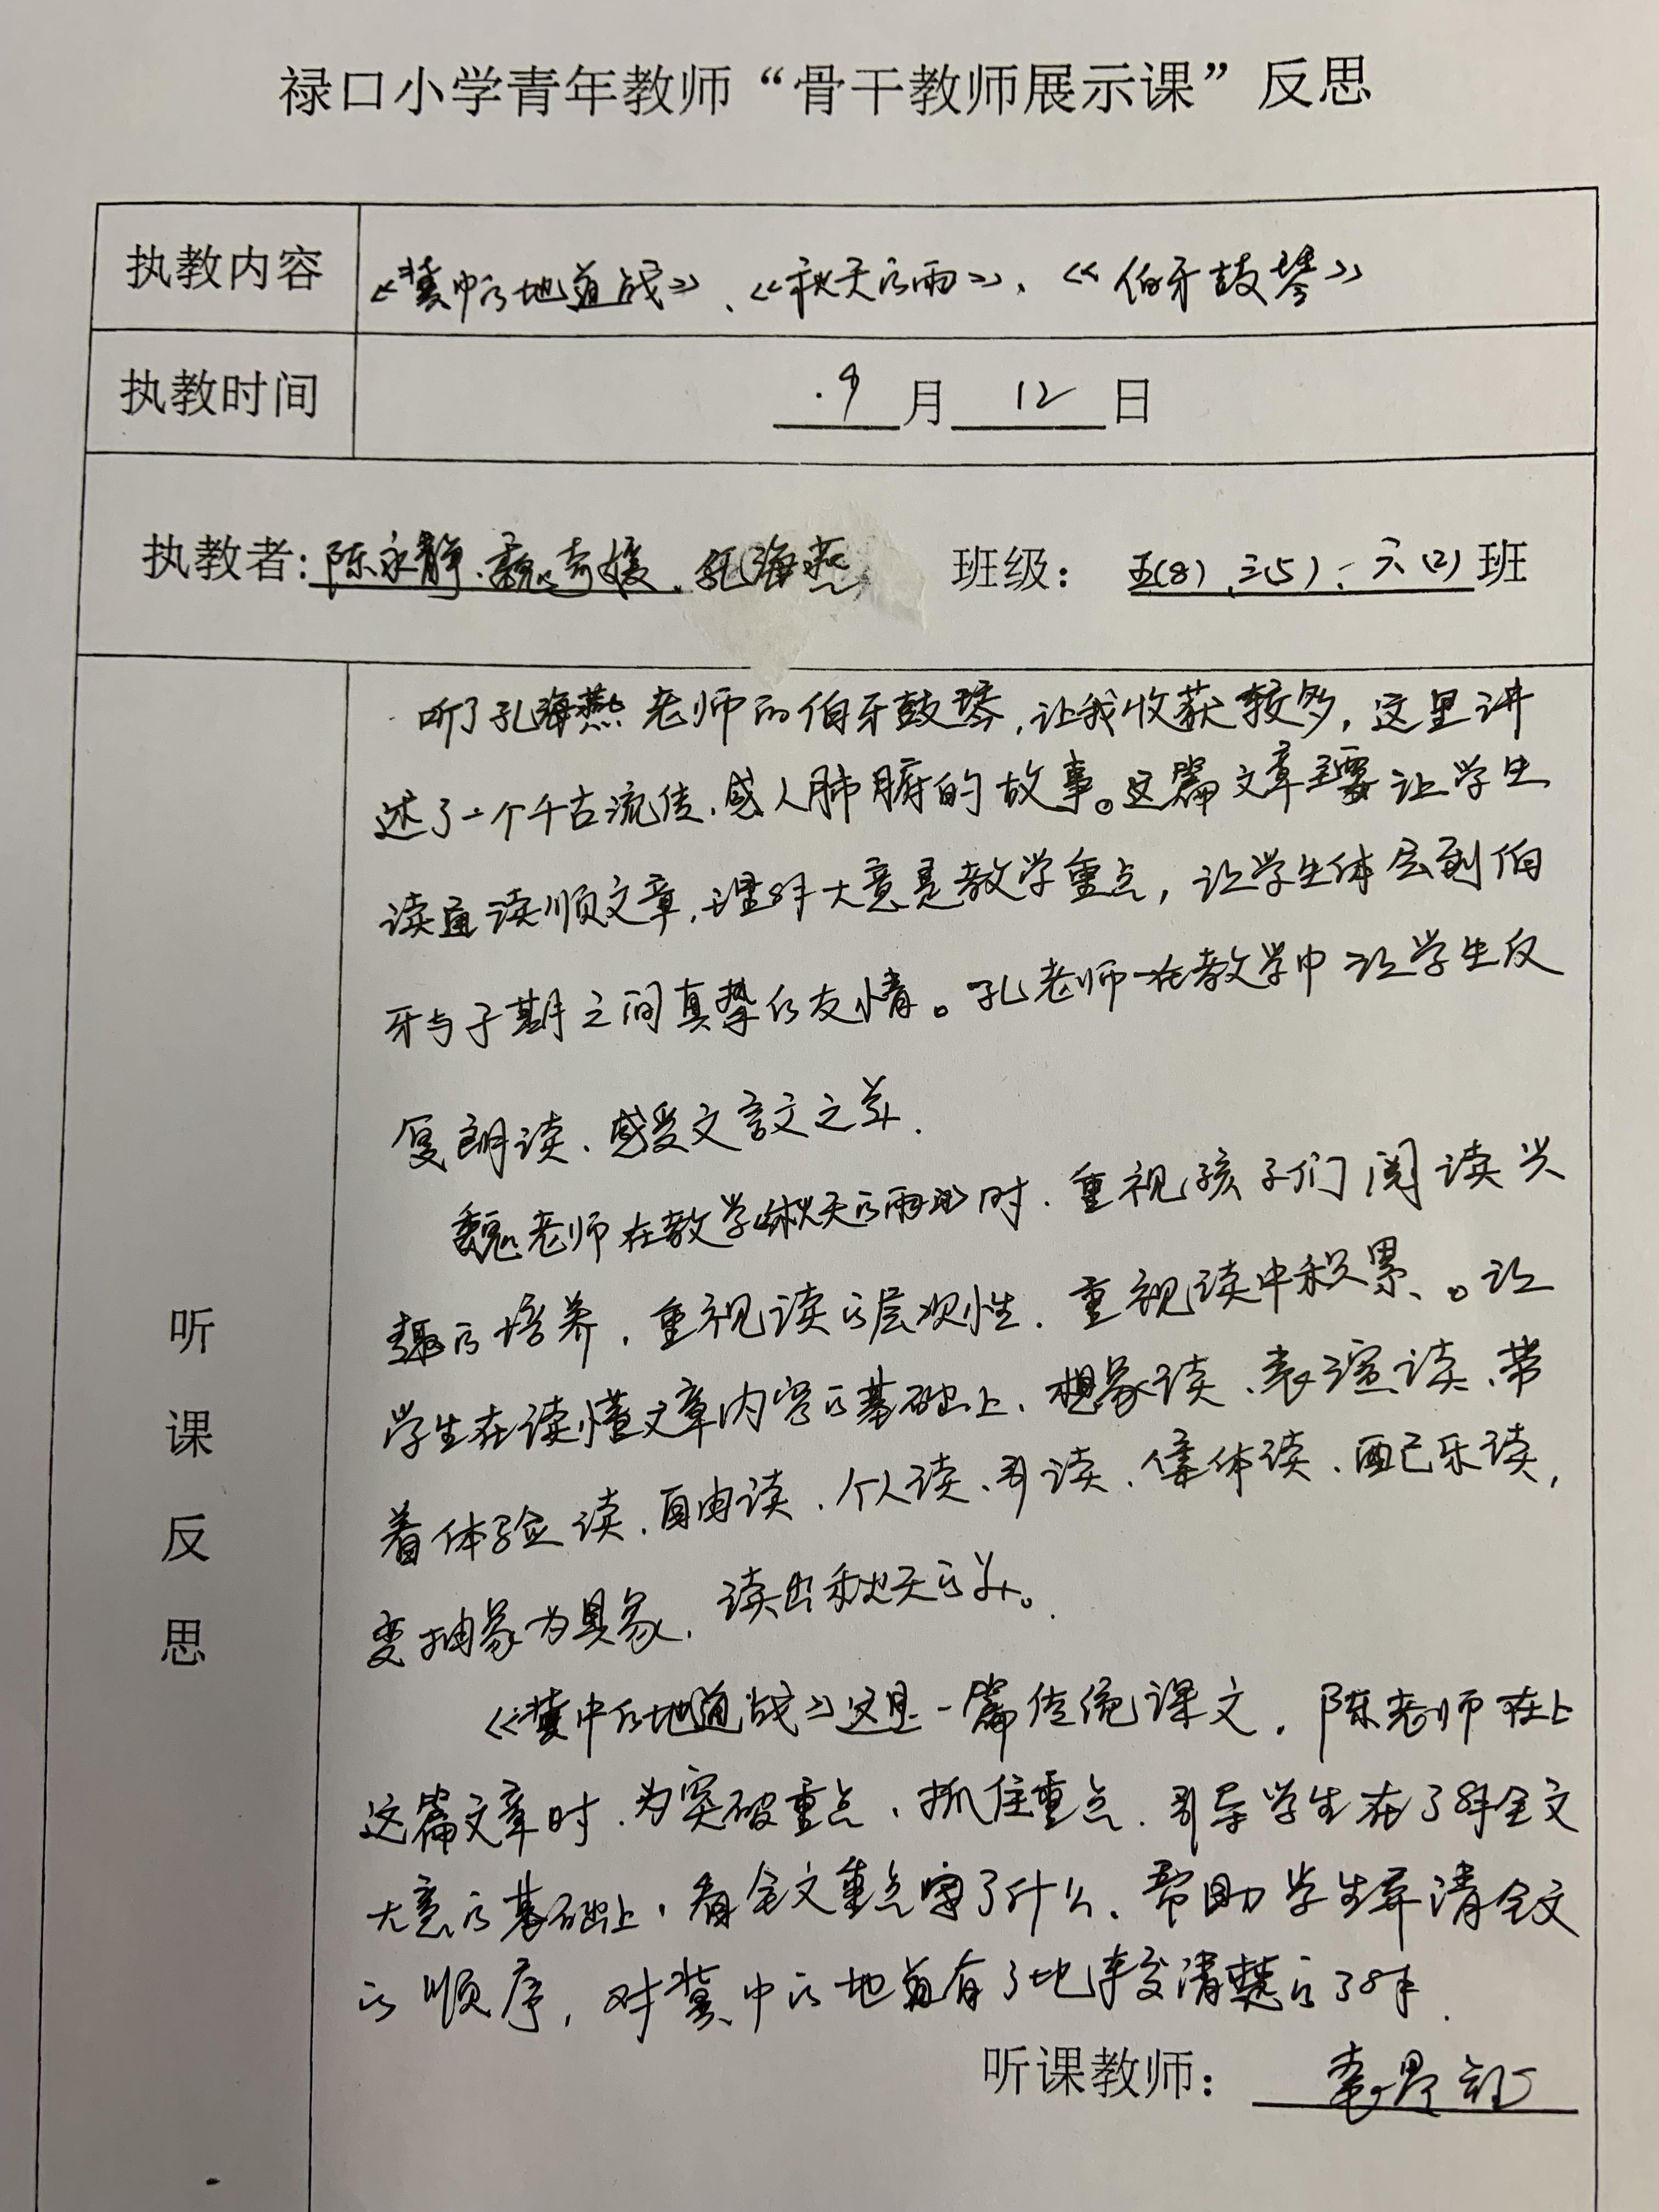 禄口小学青年教师“骨干教师展示课”反思
执教内容 《冀中的地道战》、《秋天的雨》、《伯牙鼓琴》
执教时间 9月12日
执教者:陈永静、魏奇媛、孔海燕 班级：五(8)、三(5)、六(2)班
听课反思
听了孔海燕老师的伯牙鼓琴,让我收获较多，这里讲
述了一个千古流传、感人肺腑的故事。这篇文章主要让学生
读通读顺文章,理解大意是教学重点，让学生体会到伯
牙与子期之间真挚的友情。孔老师在教学中让学生反
复朗读、感受文言文之美.
魏老师在教学《秋天的雨》时.重视孩子们阅读兴
趣的培养，重视读的层次性.重视读中积累、。让
学生在读懂文章内容的基础上、想象读、表演读、带
着体验读、自由读、个人读、引读、集体读、配乐读，
变抽象为具象，读出秋天的美。
《冀中的地道战》这是一篇传统课文，陈老师在上
这篇文章时.为突破重点、抓住重点.引导学生在了解全文
大意的基础上，看全文重点写了什么、帮助学生弄清全文
的顺序，对冀中的地道有了比较清楚的了解.
听课教师：